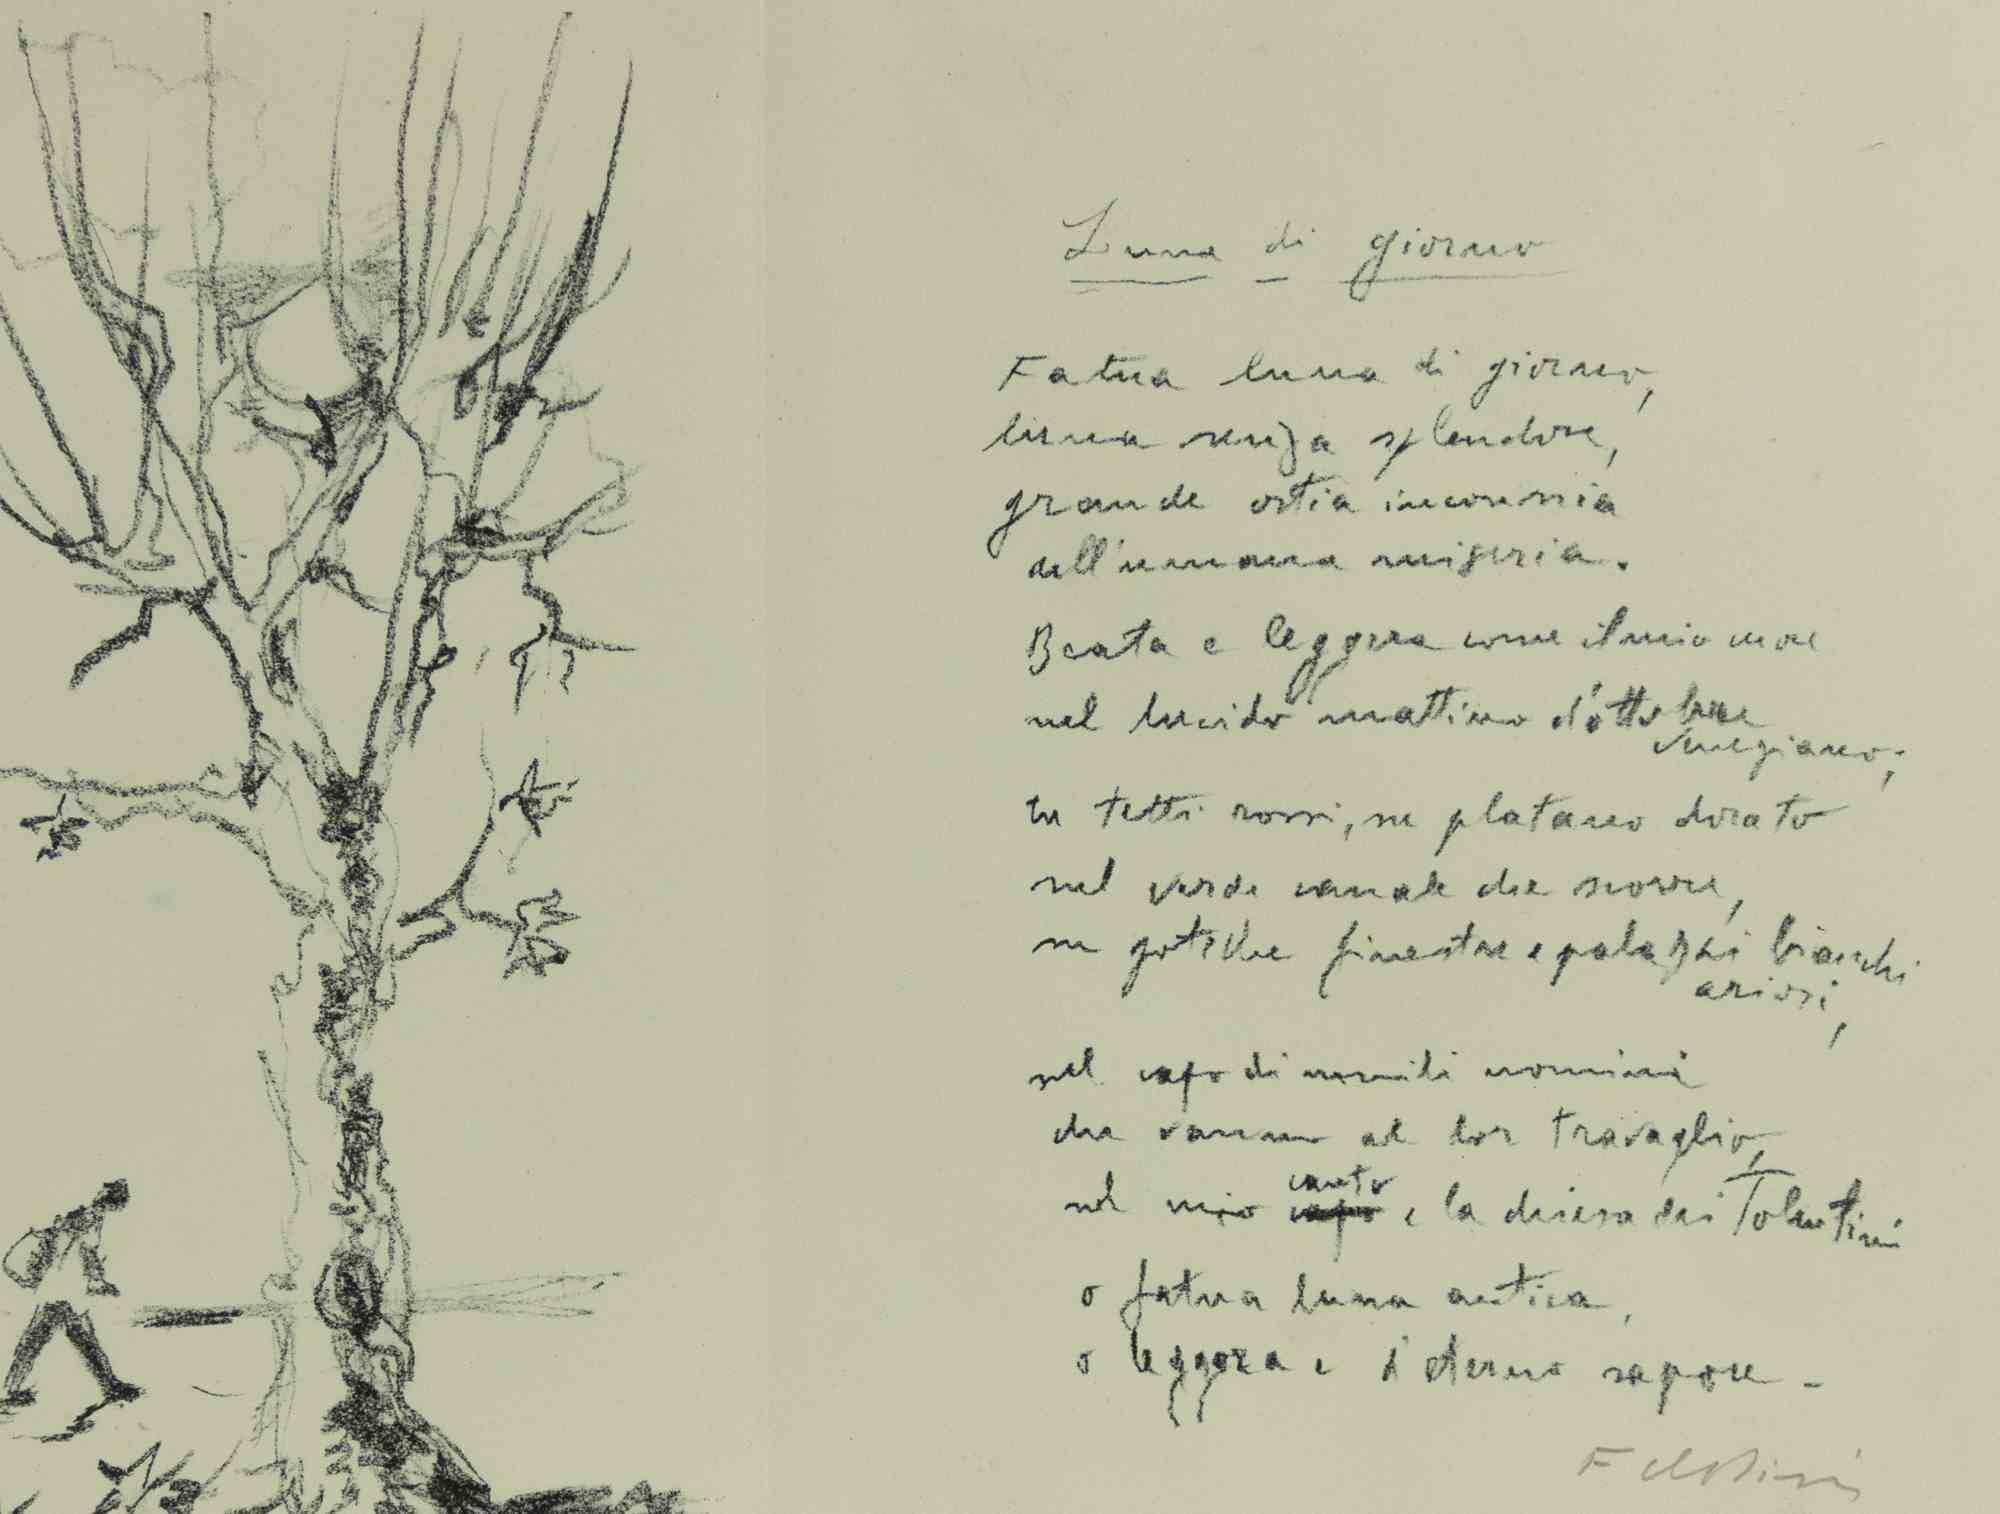 Luna di giorno
Fatua luna di giorno,
luna senza splendore,
grande ostia inconscia
dell'umana miseria.
Beata e leggera come il mio cuore
nel lucido mattino d'ottobre
veneziano;
su tetti rossi, su platano dorato
nel verde canale che scorre,
su gotiche finestre e palazzi bianchi
ariosi,
nel capo di umili uomini
che vanno al lor travaglio,
nel mio canto e la chiesa dei Tolentini
o fatua luna antica,
o leggera e eterno sapore -
F